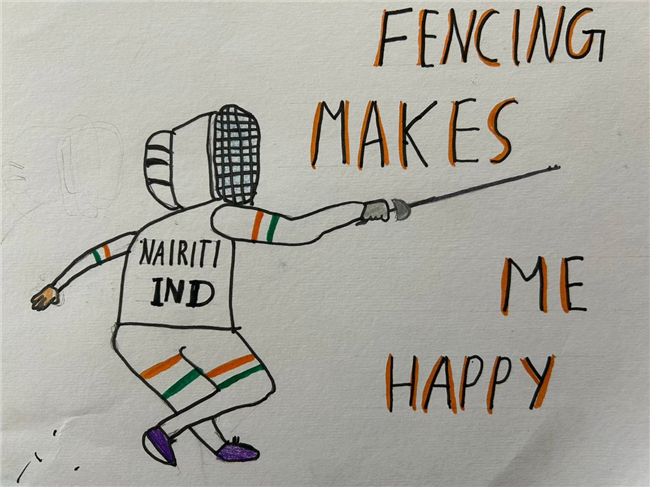 FENCING
MAKES
NAIRITI
IND
ME
HAPPY